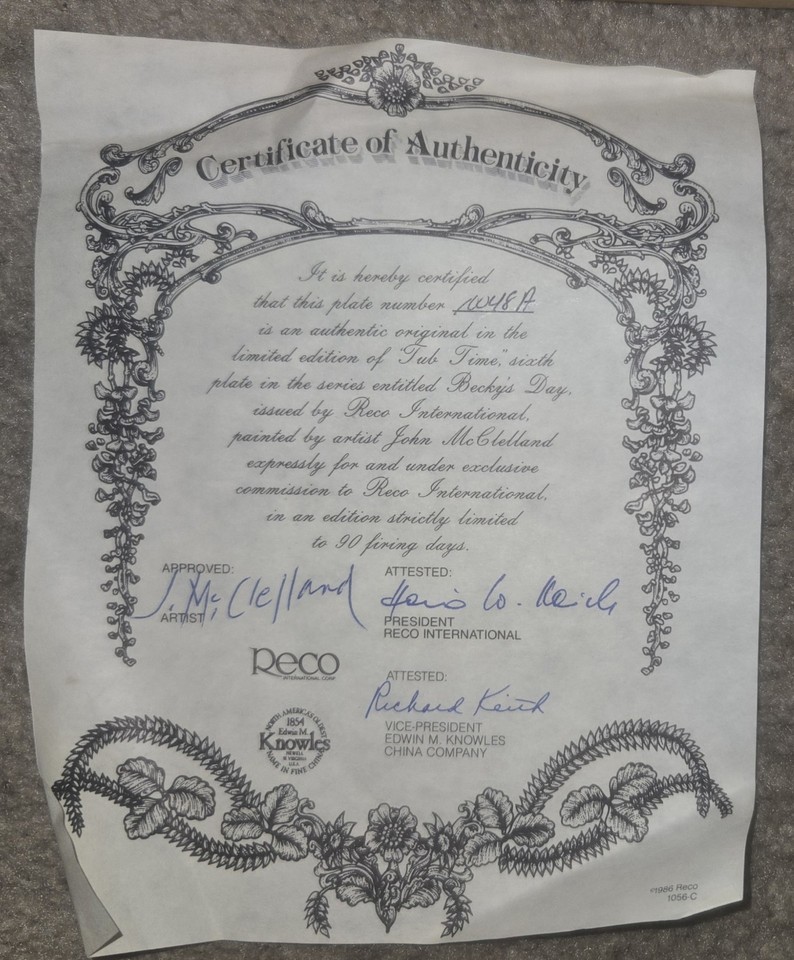 Certificate of Authenticity
It is hereby certified
that this plate number 1048A
is an authentic original in the
limited edition of "Tub Time," sixth
plate in the series entitled Becky's Day,
issued by Reco International,
painted by artist John McClelland
expressly for and under exclusive
commission to Reco International,
in an edition strictly limited
to 90 firing days.
APPROVED:
J. McClelland
ARTIST
ATTESTED:
PRESIDENT
RECO INTERNATIONAL
Reco
INTERNATIONAL CORP.
ATTESTED:
Richard Keith
VICE-PRESIDENT
EDWIN M. KNOWLES
CHINA COMPANY
NORTH AMERICA'S OLDEST
1854
Edwin M.
Knowles
NEWELL
W. VIRGINIA
U.S.A.
NAME IN FINE CHINA
©1986 Reco
1056-C